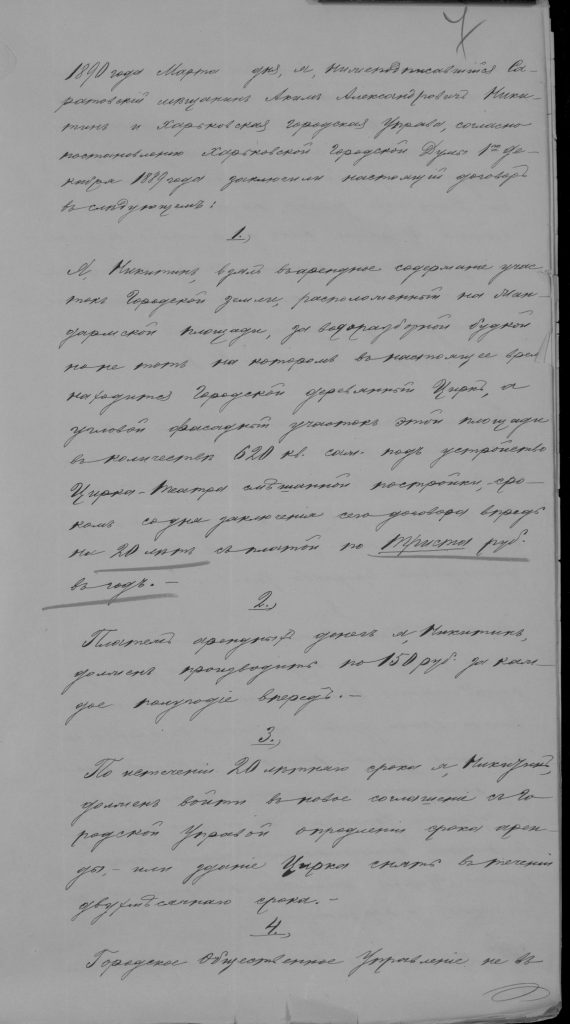 7
1890 года Марта дня, я, нижеподписавшійся Са-
ратовскій мѣщанинъ Акимъ Александровичъ Ники-
тинъ и Харьковская Городская Управа, согласно
постановленію Харьковской Городской Думы 1го де-
кабря 1889 года заключили настоящій договоръ
въ слѣдующемъ:
1.,
Я, Никитинъ, взялъ въ арендное содержаніе учас-
токъ Городской земли, расположенный на Жан-
дармской площади, за водоразборной будкой
но не тотъ на которомъ въ настоящее врем
находится Городской деревянный Циркъ, а
угловой фасадной участокъ этой площади
въ количествѣ 620 кв. саж. подъ устройство
Цирка-Театра смѣшанной постройки, сро-
комъ со дня заключенія сего договора впредь
на 20 лѣтъ съ платой по триста руб.
въ годъ. —
2.,
Платежъ арендныхъ денегъ я, Никитинъ,
долженъ производить по 150 руб. за каж-
дое полугодіе впередъ. —
3.,
По истеченіи 20 лѣтняго срока я, Никитинъ,
долженъ войти въ новое соглашеніе съ Го-
родской Управой опредленіи срока арен-
ды, — или зданіе Цирка снять въ теченіи
двухмѣсячнаго срока. —
4.,
Городское Общественное Управленіе не въ